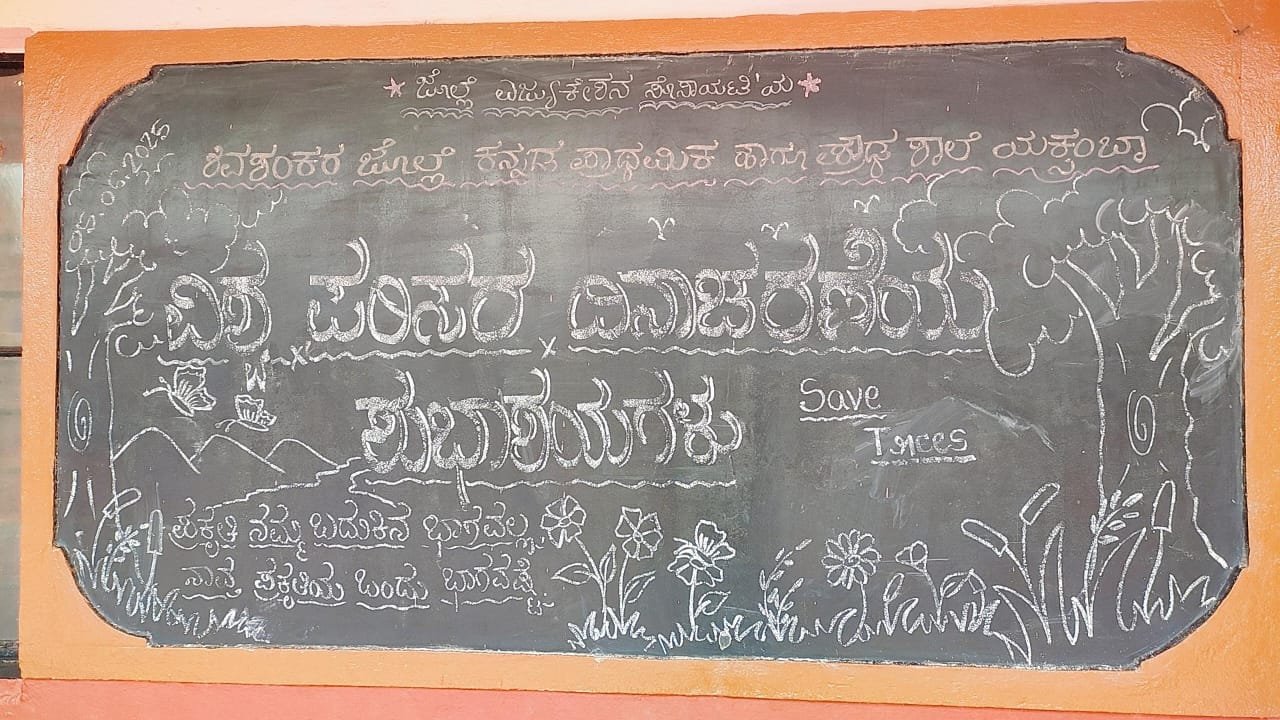 ಜೊಲ್ಲೆ ಎಜ್ಯುಕೇಶನ ಸೊಸಾಯಟಿ'ಯ
ಶಿವಶಂಕರ ಜೊಲ್ಲೆ ಕನ್ನಡ ಪ್ರಾಥಮಿಕ ಹಾಗೂ ಪ್ರೌಢ ಶಾಲೆ ಯಕ್ಸಂಬಾ
05.06.2025
ವಿಶ್ವ ಪರಿಸರ ದಿನಾಚರಣೆಯ
ಶುಭಾಶಯಗಳು
Save
Trees
ಪ್ರಕೃತಿ ನಮ್ಮ ಬದುಕಿನ ಭಾಗವಲ್ಲ
ನಾವು ಪ್ರಕೃತಿಯ ಒಂದು ಭಾಗವಷ್ಟೆ